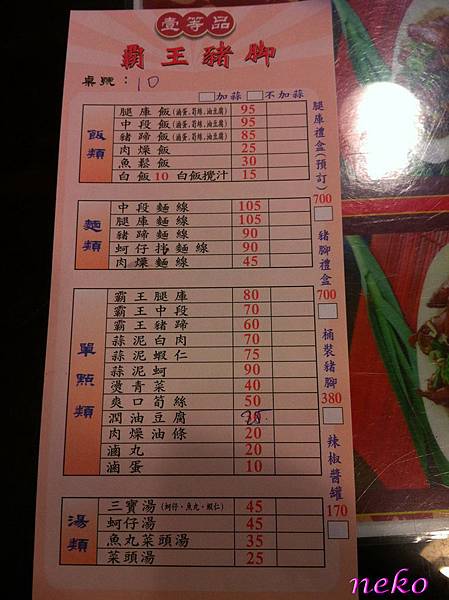 壹等品
霸王豬脚
桌號：10
加蒜 不加蒜
飯類
腿庫飯(滷蛋、筍絲、油豆腐) 95
中段飯(滷蛋、筍絲、油豆腐) 95
豬蹄飯(滷蛋、筍絲、油豆腐) 85
肉燥飯 25
魚鬆飯 30
白飯10 白飯攪汁 15
麵類
中段麵線 105
腿庫麵線 105
豬蹄麵線 90
蚵仔拌麵線 90
肉燥麵線 45
單點類
霸王腿庫 80
霸王中段 70
霸王豬蹄 60
蒜泥白肉 70
蒜泥蝦仁 75
蒜泥蚵 90
燙青菜 40
爽口筍絲 50
潤油豆腐
肉燥油條 20
滷丸 20
滷蛋 10
湯類
三寶湯(蚵仔、魚丸、蝦仁) 45
蚵仔湯 45
魚丸菜頭湯 35
菜頭湯 25
腿庫禮盒(預訂) 700
豬腳禮盒 700
桶裝豬腳 380
辣椒醬罐 170
neko